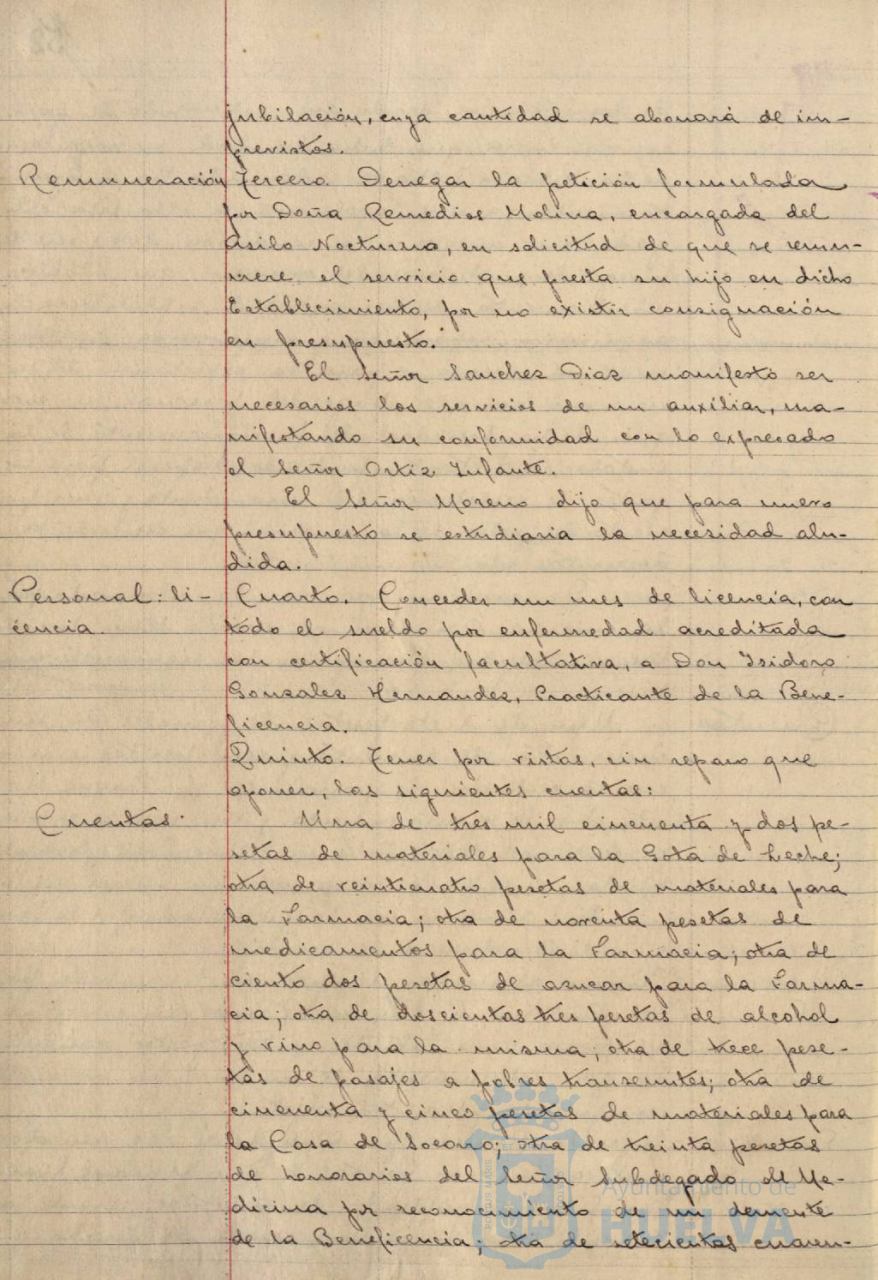 jubilación, cuya cantidad se abonará de im-
previstos.
Remuneración
Tercero. Denegar la petición formulada
por Doña Remedios Molina, encargada del
Asilo Nocturno, en solicitud de que se remu-
nere el servicio que presta su hijo en dicho
Establecimiento, por no existir consignación
en presupuesto.
El Señor Sanchez Diaz manifestó ser
necesarios los servicios de un auxiliar, ma-
nifestando su conformidad con lo expresado
el Señor Ortiz Infante.
El Señor Moreno dijo que para nuevo
presupuesto se estudiaria la necesidad alu-
dida.
Personal: li-
cencia.
Cuarto. Conceder un mes de licencia, con
todo el sueldo por enfermedad acreditada
con certificación facultativa, a Don Isidoro
Gonzalez Hernandez, Practicante de la Bene-
ficencia.
Quinto. Tener por vistas, sin reparo que
oponer, las siguientes cuentas:
Cuentas.
Una de tres mil cincuenta y dos pe-
setas de materiales para la Gota de Leche;
otra de veinticuatro pesetas de materiales para
la Farmacia; otra de noventa pesetas de
medicamentos para la Farmacia; otra de
ciento dos pesetas de azucar para la Farma-
cia; otra de doscientas tres pesetas de alcohol
y vino para la misma; otra de trece pese-
tas de pasajes a pobres transeuntes; otra de
cincuenta y cinco pesetas de materiales para
la Casa de Socorro; otra de treinta pesetas
de honorarios del Señor Subdegado de Me-
dicina por reconocimiento de un demente
de la Beneficencia; otra de setecientas cuaren-
Ayuntamiento de
HUELVA